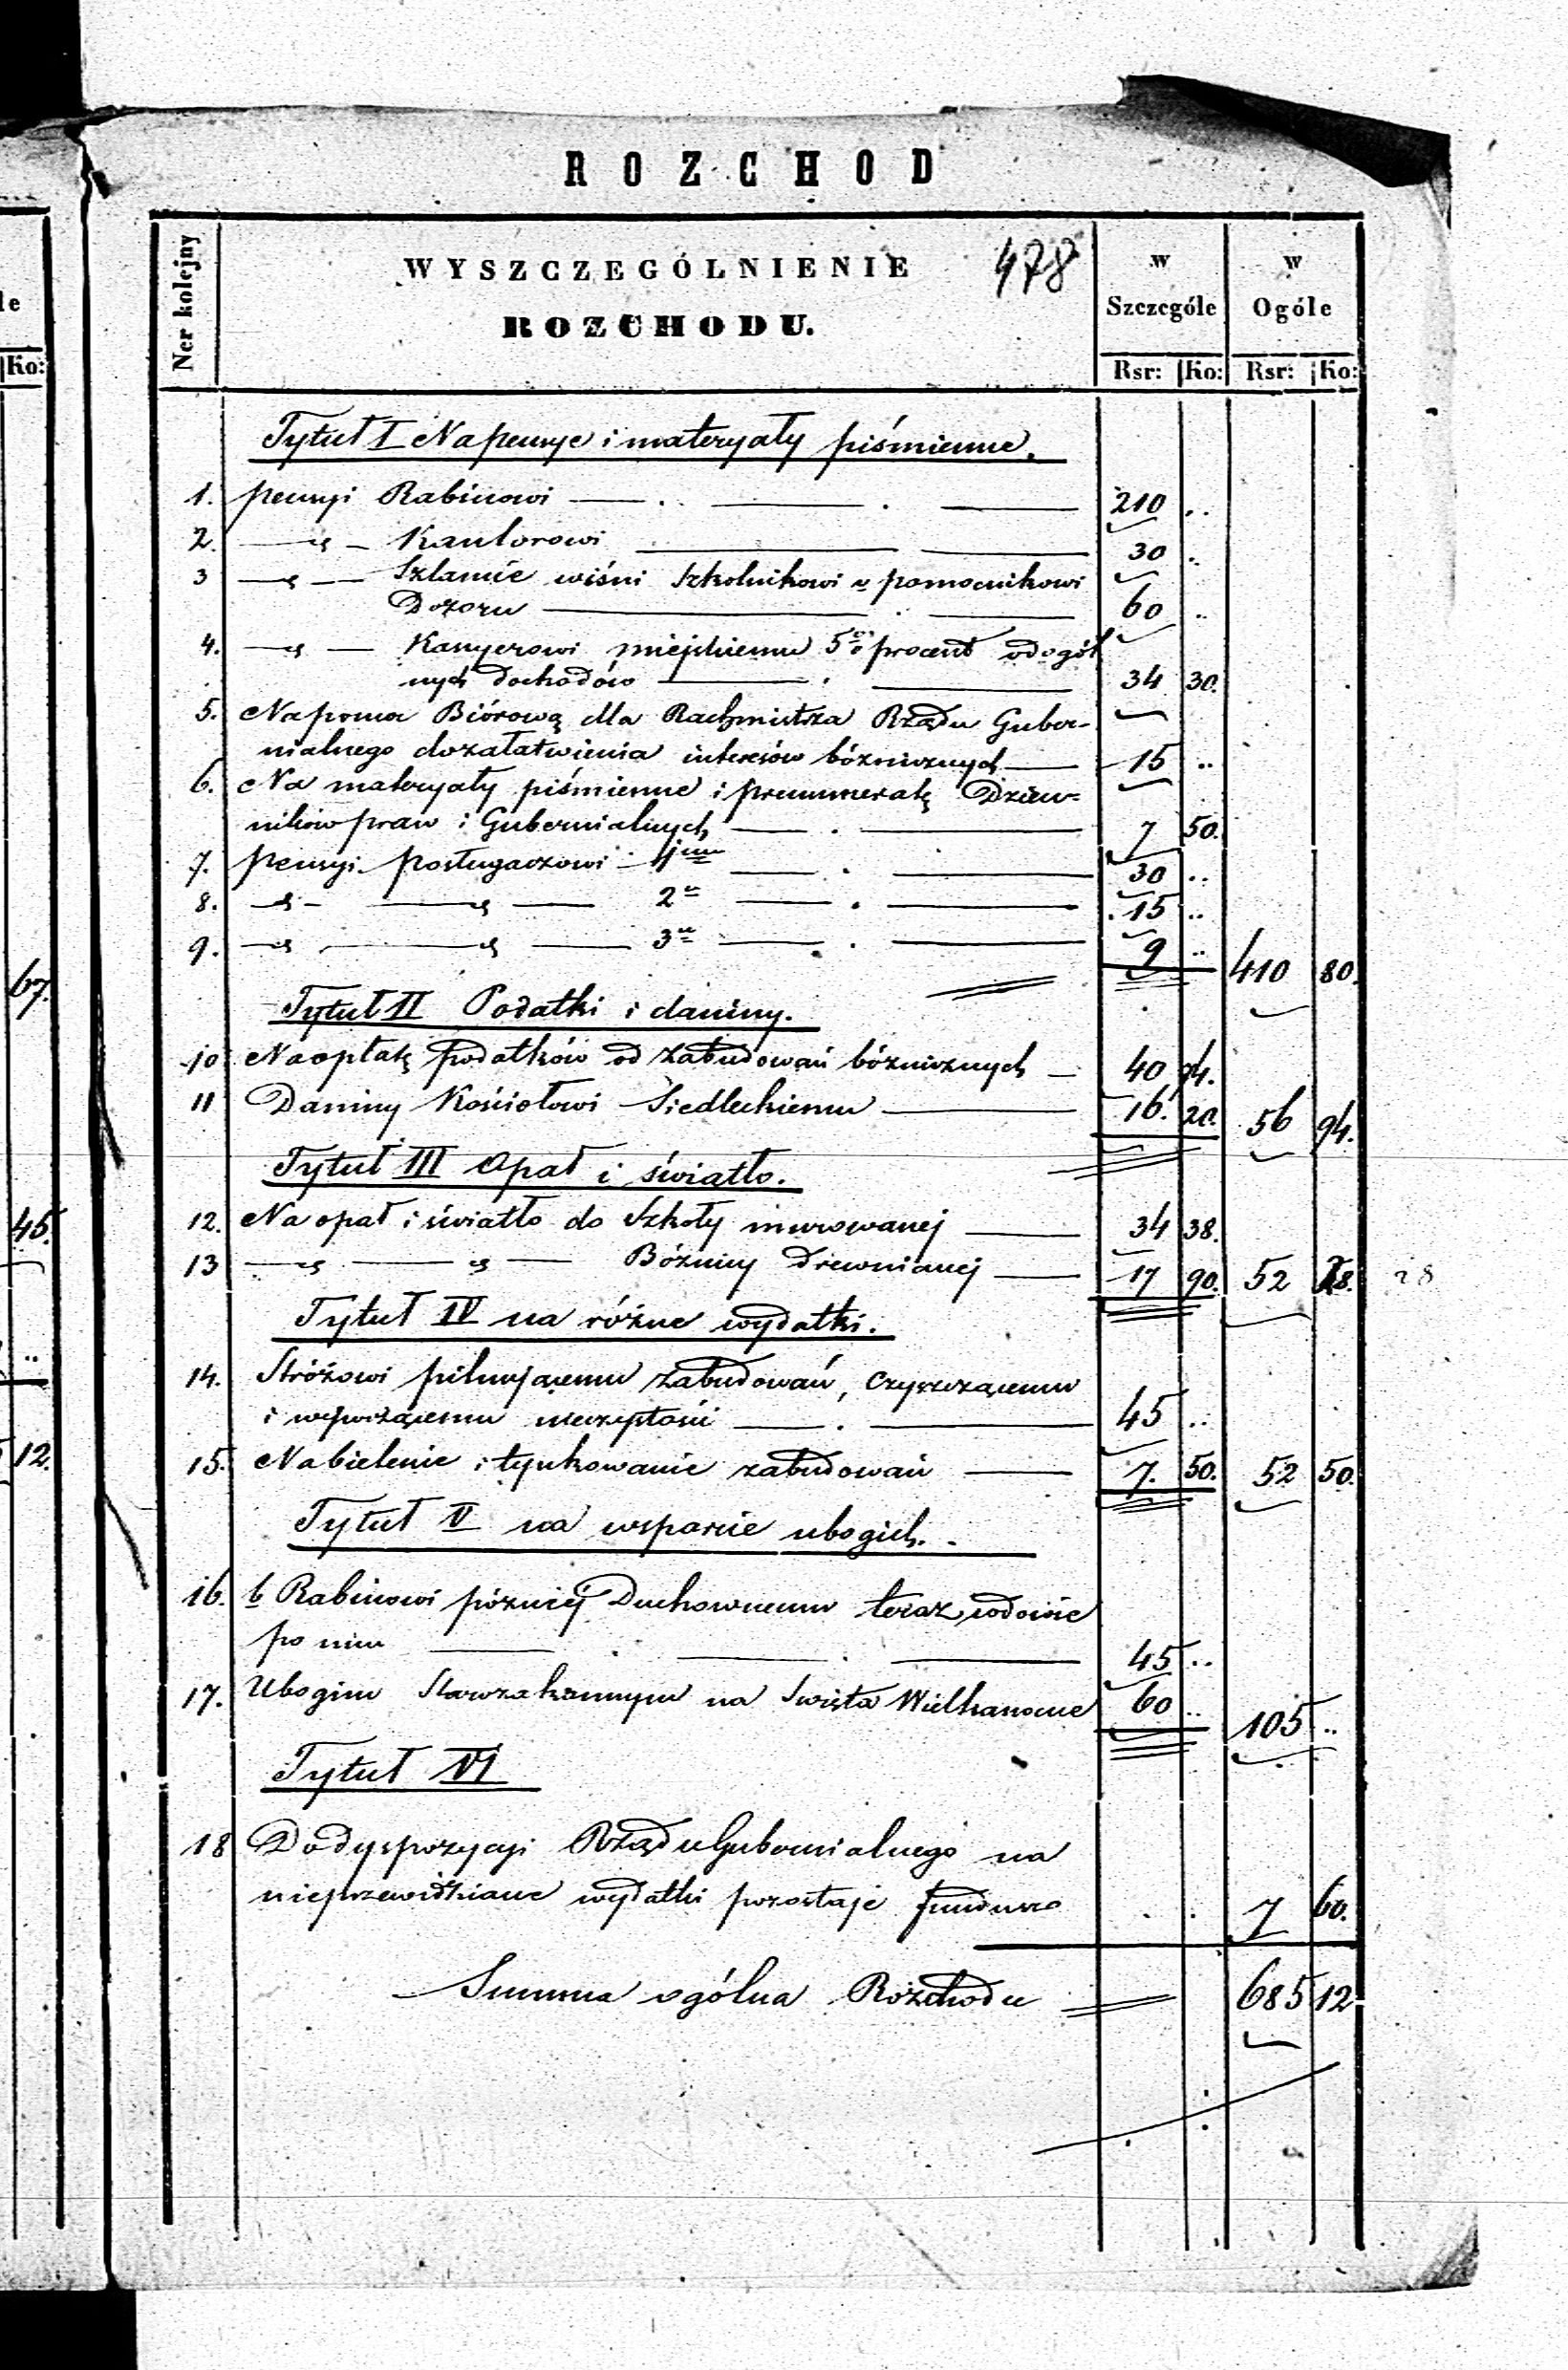 le
Ko:
67.
45.
..
12.
ROZCHOD
Ner kolejny
WYSZCZEGÓLNIENIE
478
ROZCHODU.
w Szczególe
w Ogóle
Rsr: Ko: Rsr: Ko:
Tytuł I Na pensye i materyały piśmienne.
1. pensyi Rabinowi 210 ..
2. Kantorowi 30 ..
3 Szlamie wiśni Szkolnikowi pomocnikowi
Dozoru 60 ..
4. Kassyerowi miejskiemu 5 procent od ogól
nych dochodów 34 30.
5. Na pomoc Biórową dla Rachmistrza Rządu Guber-
nialnego do załatwienia interesów bóżnicznych 15 ..
6. Na materyały piśmienne i prenumeratę Dzien-
ników praw i Gubernialnych 7 50.
7. pensyi posługaczowi 1mu 30 ..
8. 2u 15 ..
9. 3u 9 .. 410 80.
Tytuł II Podatki i daniny.
10 Na opłatę podatków od zabudowań bóżnicznych 40 74.
11 Daniny Kościołowi Siedleckiemu 16. 20. 56 94.
Tytuł III Opał i światło.
12. Na opał i światło do Szkoły murowanej 34 38.
13 Bóżnicy Drewnianej 17 90. 52 28. 28
Tytuł IV na różne wydatki.
14. Stróżowi pilnującemu zabudowań, czyszczącemu
i wywożącemu nieczystości 45 ..
15. Na bielenie i tynkowanie zabudowań 7. 50. 52 50.
Tytuł V na wsparcie ubogich.
16. b Rabinowi później Duchownemu teraz wdowie
po nim 45 ..
17. Ubogim Starozakonnym na Święta Wielkanocne 60 .. 105 ..
Tytuł VI
18 Do dyspozycyi Rządu Gubernialnego na
nieprzewidziane wydatki pozostaje fundusz 7 60.
Summa ogólna Rozchodu 685 12